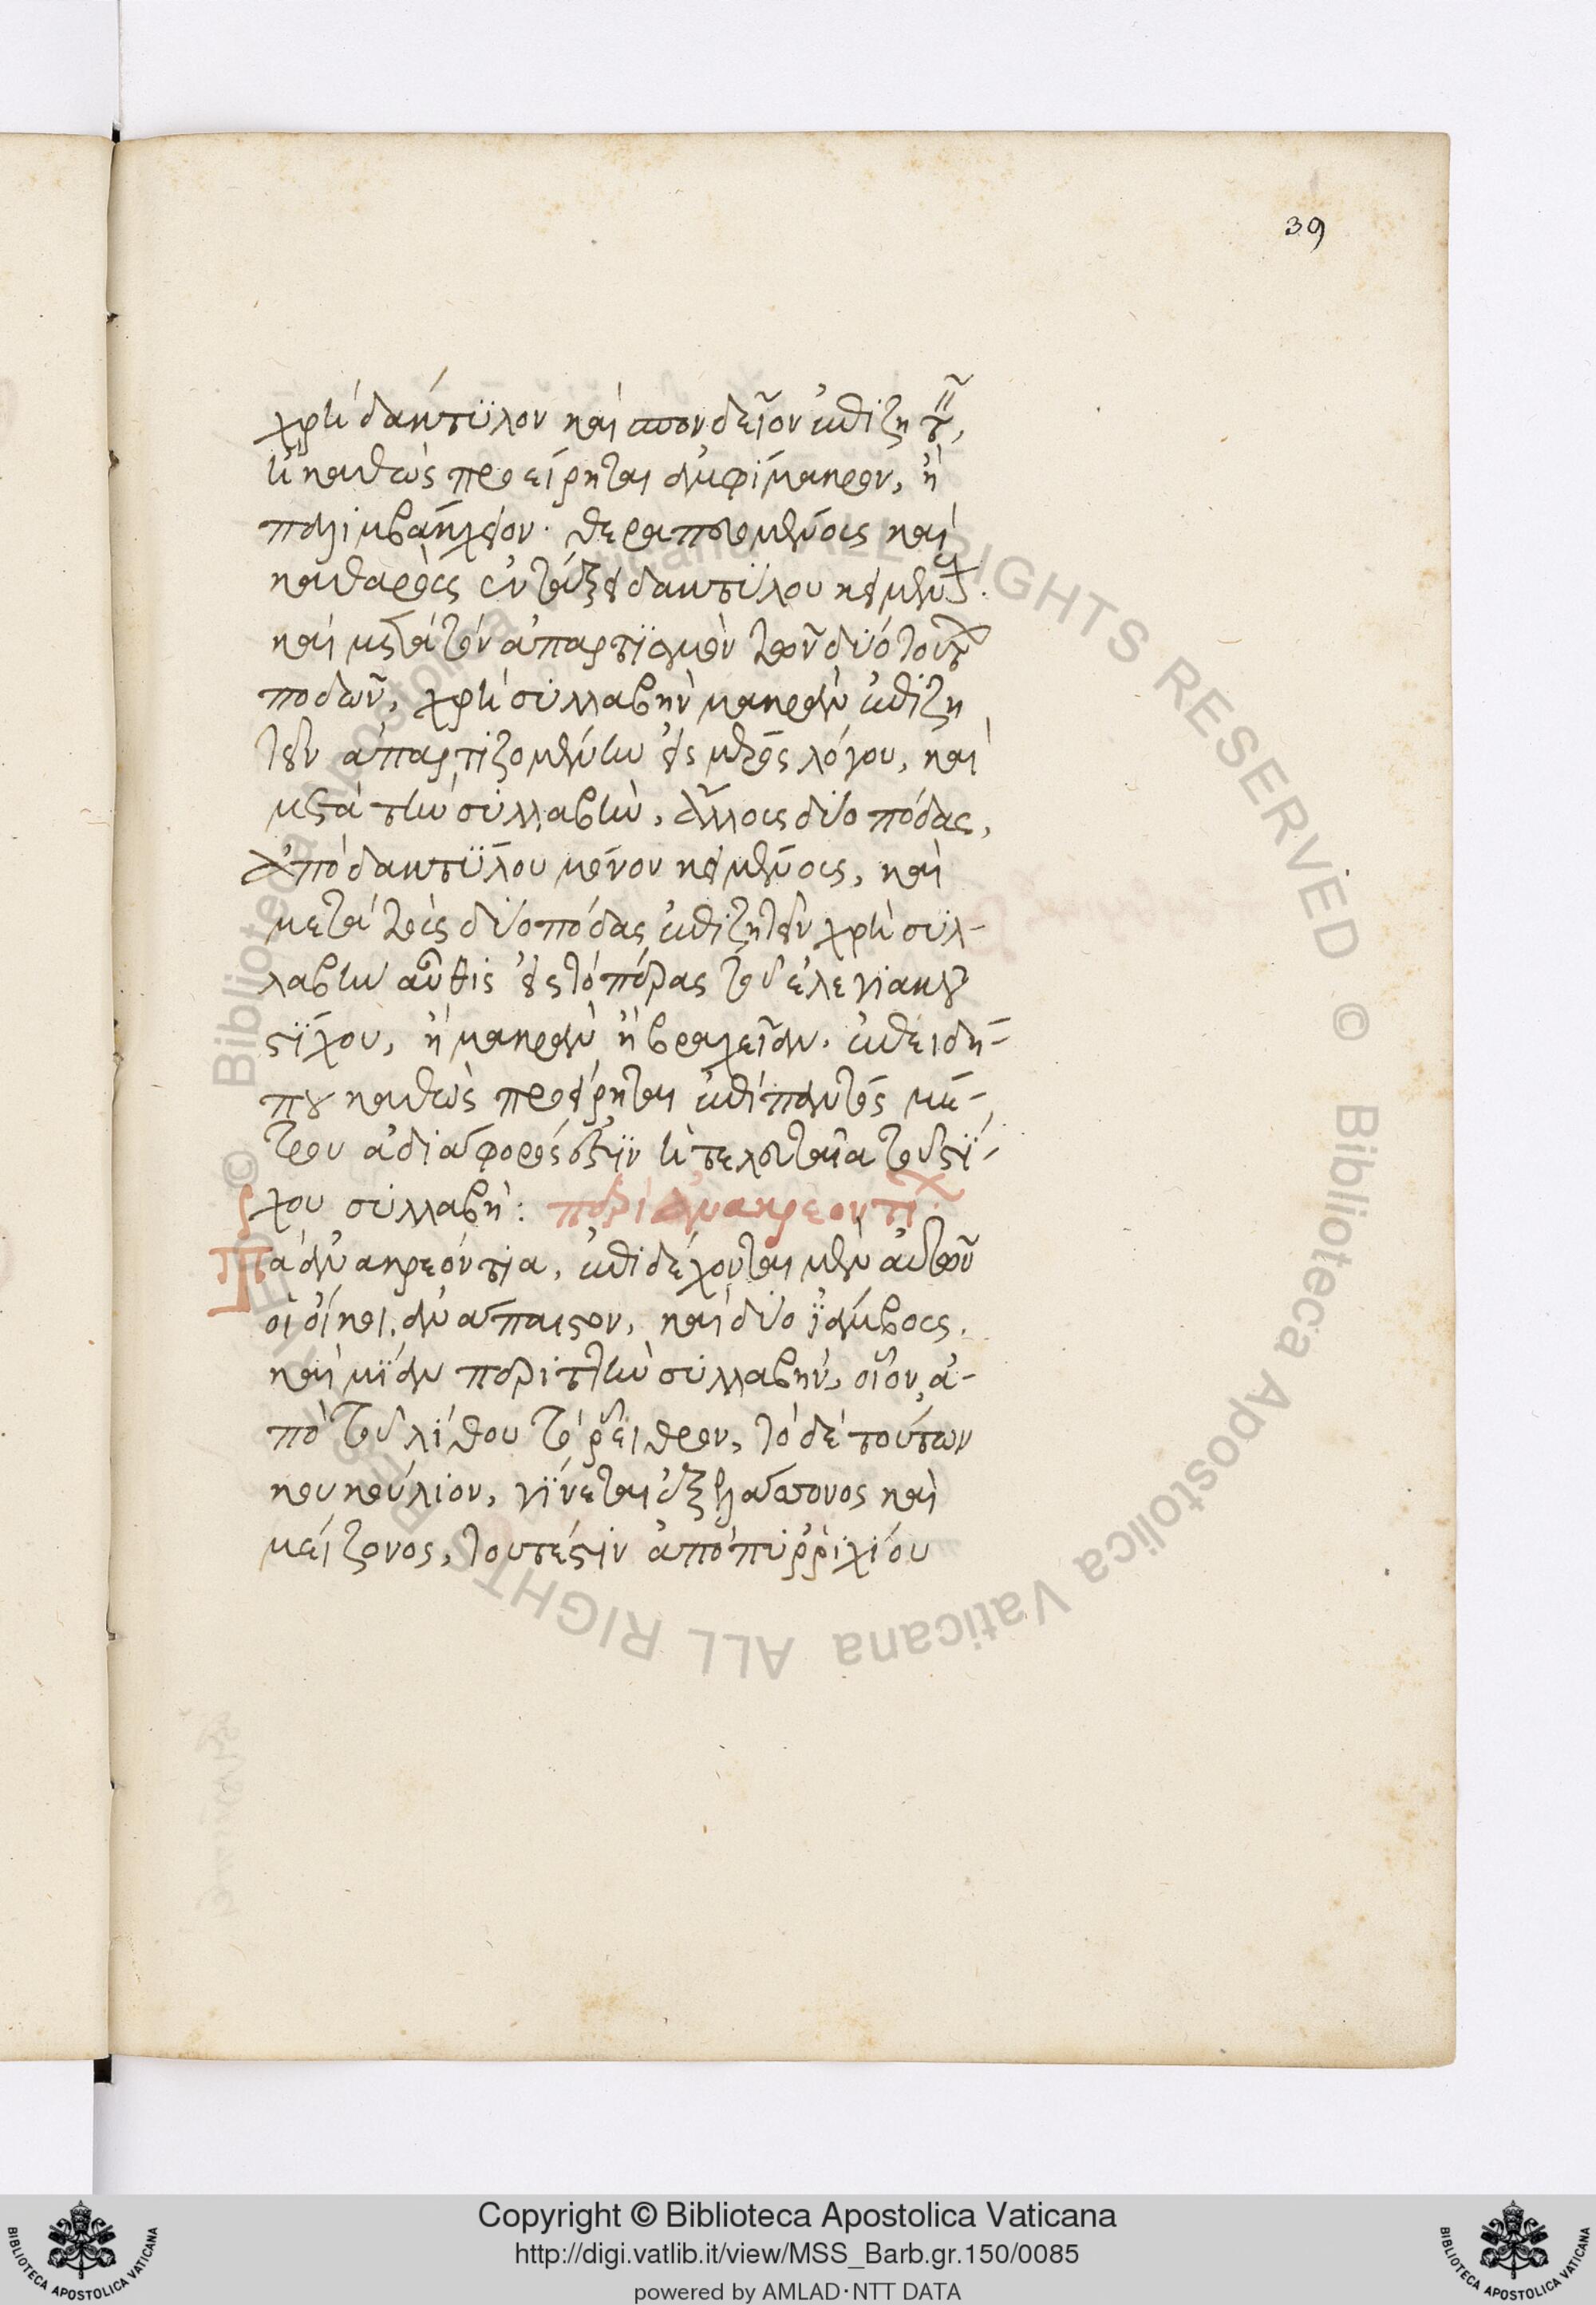 39
χρὴ δάκτυλον καὶ σπονδεῖον ἐπιζητεῖν,
ἢ καθὼς προείρηται ἀμφίμακρον, ἢ
παλιμβάκχειον. θεραπευομένους καὶ
καθαροὺς ἐν τάξει δακτύλου κειμένους.
καὶ μετὰ τὸν ἀπαρτισμὸν τῶν δύο τούτων
ποδῶν, χρὴ συλλαβὴν μακρὰν ἐπιζη
τεῖν ἀπαρτιζομένην εἰς μέρος λόγου, καὶ
μετὰ τὴν συλλαβὴν, ἄλλους δύο πόδας,
ἀπὸ δακτύλου μόνον κειμένους, καὶ
μετὰ τοὺς δύο πόδας ἐπιζητεῖν χρὴ συλ-
λαβὴν αὖθις εἰς τὸ πέρας τοῦ ἐλεγιακοῦ
στίχου, ἢ μακρὰν ἢ βραχεῖαν. ἐπειδή-
που καθὼς προείρηται ἐπὶ παντὸς μέ-
τρου ἀδιάφορός ἐστιν ἡ τελευταία τοῦ στί-
χου συλλαβή: περὶ ἀνακρεοντίων
Τὰ ἀνακρεόντια, ἐπιδέχονται μὲν αὐτῶν
οἱ οἶκοι, ἀνάπαιστον, καὶ δύο ἰάμβους,
καὶ μίαν περιττὴν συλλαβὴν, οἷον, ἀ-
πὸ τοῦ λίθου τὸ ῥεῖθρον, τὸ δὲ τούτων
κουκούλιον, γίνεται ἐξ ἐλάσσονος καὶ
μείζονος, τουτέστιν ἀπὸ πυρριχίου
Copyright © Biblioteca Apostolica Vaticana
http://digi.vatlib.it/view/MSS_Barb.gr.150/0085
powered by AMLAD·NTT DATA